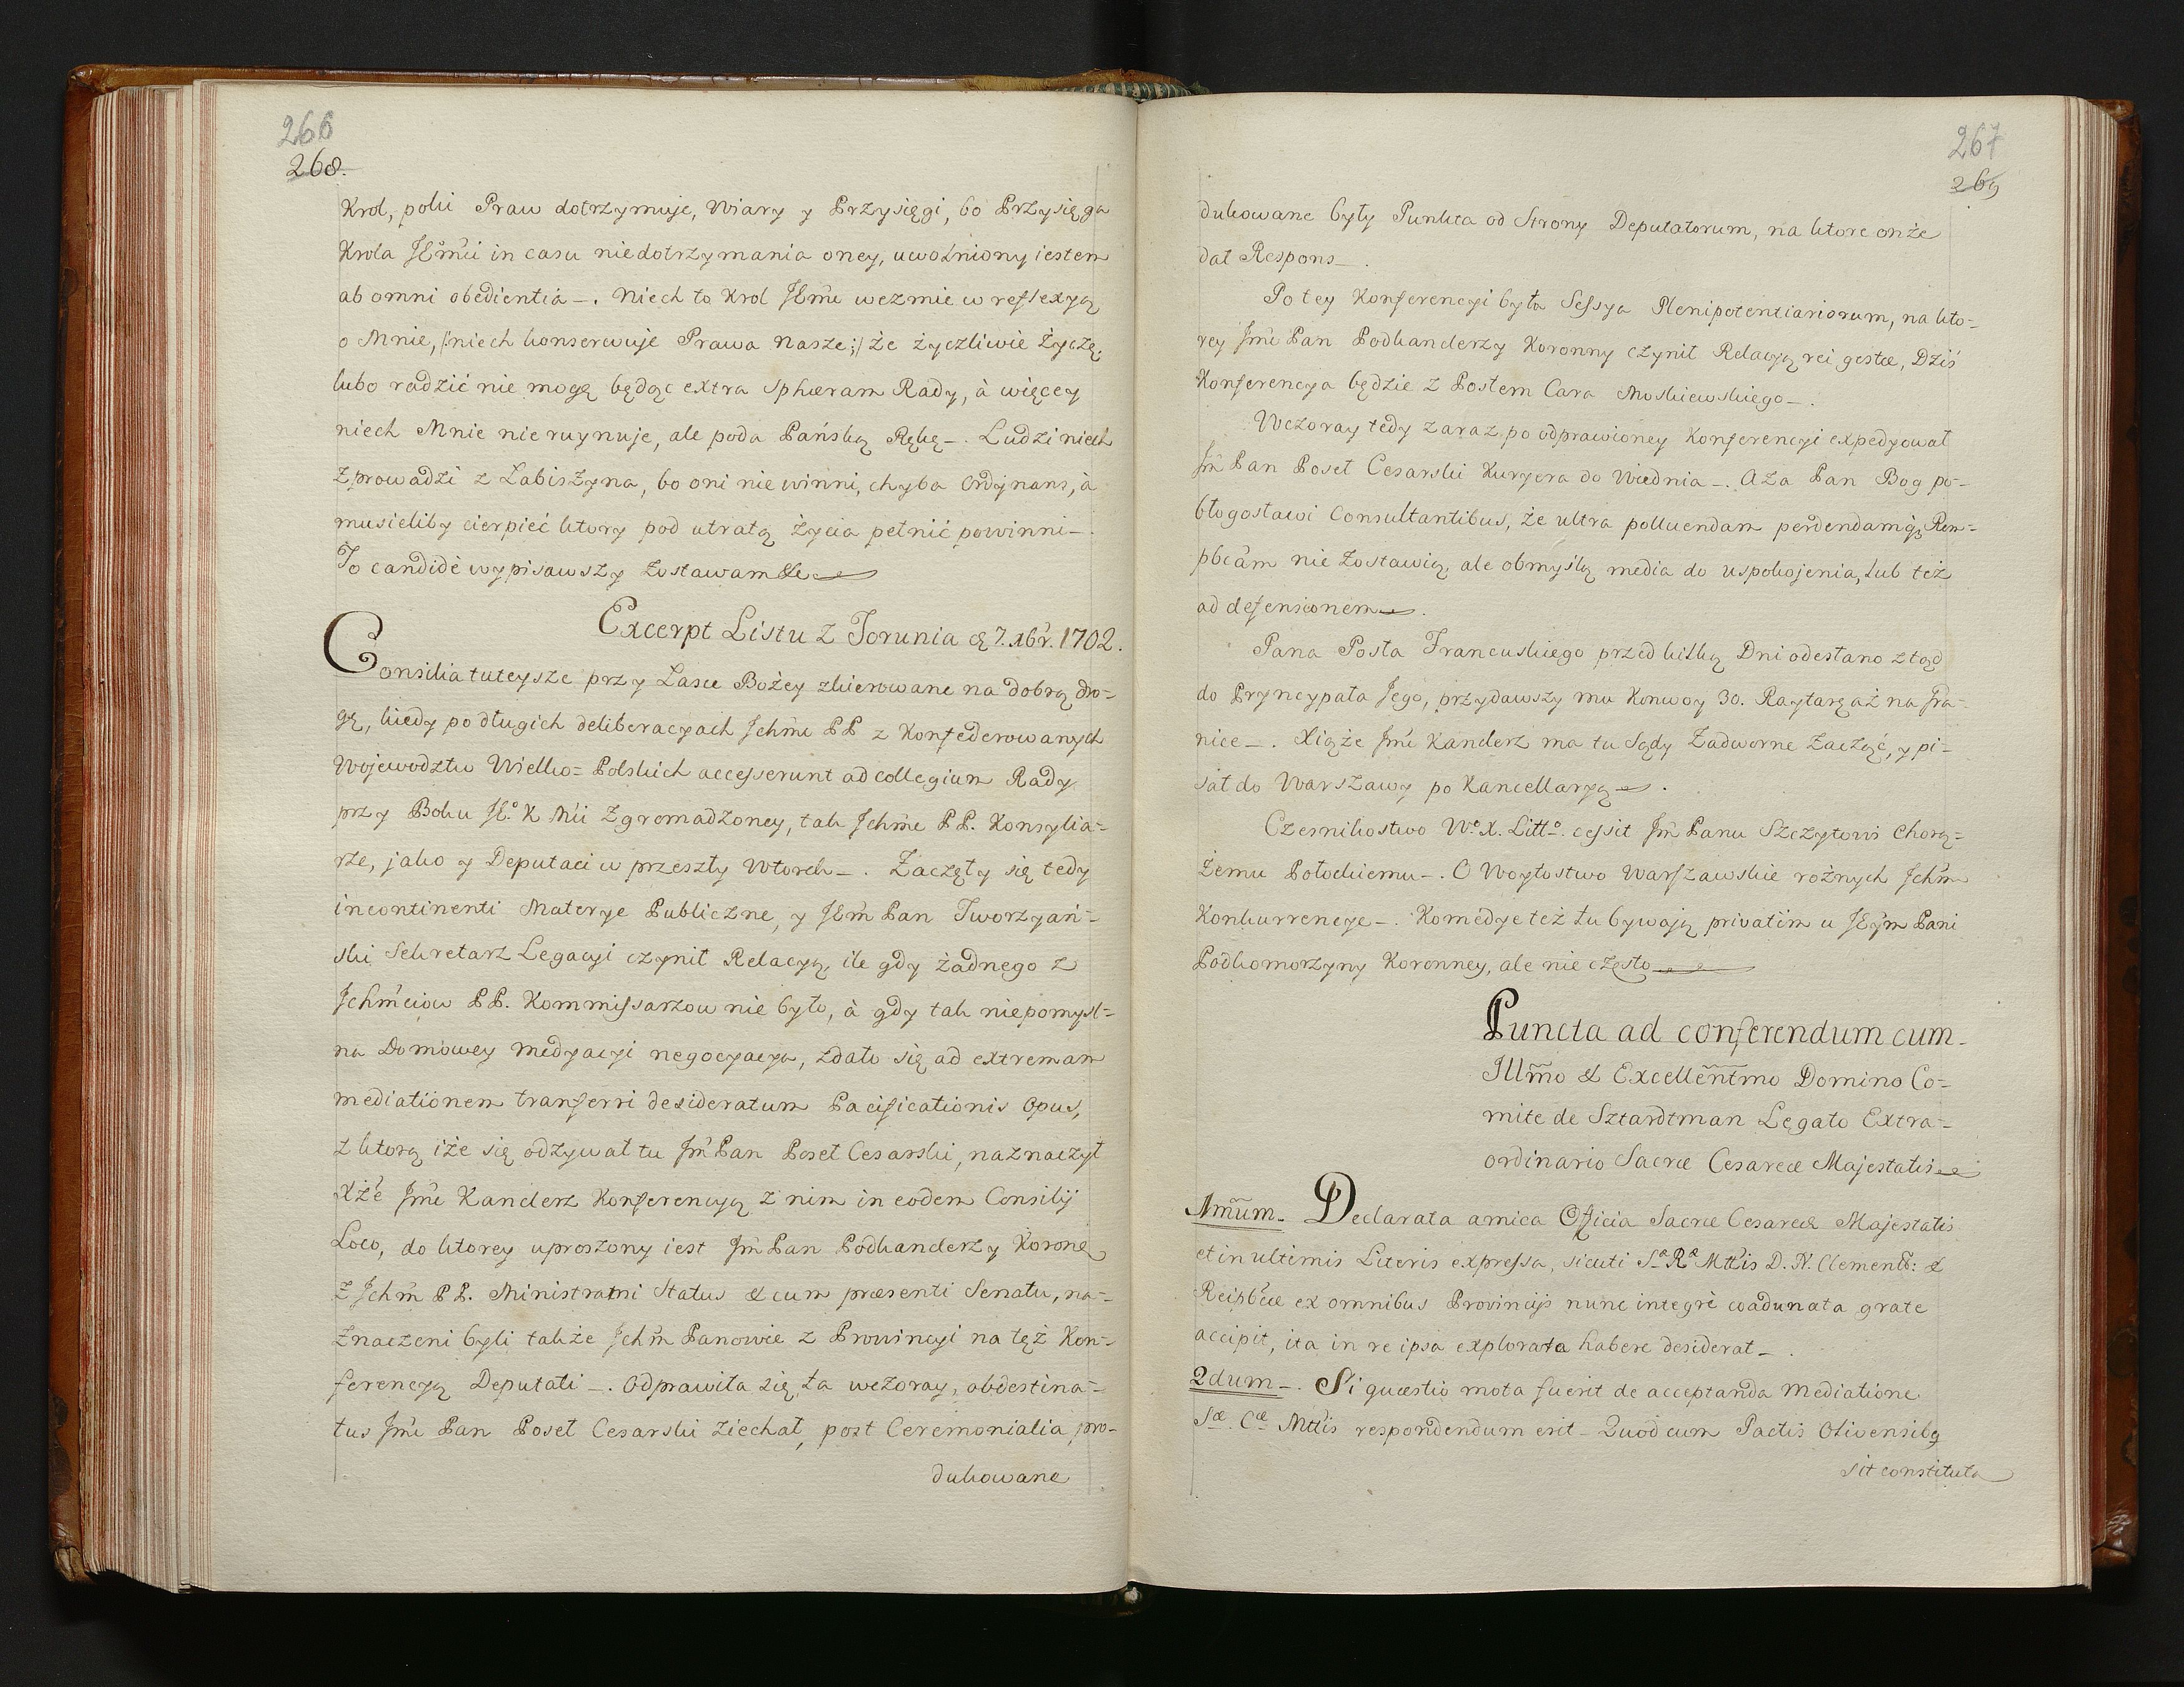 266
268.
Krol, poki Praw dotrzymuje, Wiary y Przysięgi, bo Przysięga
Krola JEmći in casu niedotrzymania oney, uwolniony iestem
ab omni obedientiá –. Niech to Krol JEmć wezmie w reflexyą
o Mnie, /:niech konserwuje Prawa nasze:/ że życzliwie życzę,
lubo radzić nie mogę będąc extra Sphæram Rady, à więcey
niech Mnie nie ruynuje, ale poda Pańską Rękę –. Ludzi niech
zprowadzi z Łabiszyna, bo oni nie winni, chyba Ordynans, à
musieliby cierpieć ktory pod utratą życia pełnić powinni –.
To candidè wypisawszy zostawam &c
Excerpt Listu z Torunia d. 7. Xbr. 1702.
Consilia tuteysze przy Łasce Bożey zkierowane na dobrą dro=
gę, kiedy po długich deliberacyach Jchmć PP z Konfederowanych
Wojewodztw Wielko=Polskich accesserunt ad collegium Rady
przy Boku JEº. K Mći zgromadzoney, tak Jchmć PP. Konsylia=
rze, jako y Deputaci w przeszły Wtorek –. Zaczęły się tedy
incontinenti Materye Publiczne, y JEm Pan Tworzyań=
ski Sekretarz Legacyi czynił Relacyą, ile gdy żadnego z
Jchmćiow PP. Kommissarzow nie było, à gdy tak niepomyśl=
na Domowey Medyacyi negocyacya, zdało się ad extremam
mediationem transferri desideratum Pacificationis Opus,
z ktorą iże się odzywał tu Jm Pan Poseł Cesarski, naznaczył
Xże Jmć Kanclerz Konferencyą z nim in eodem Consilij
Loco, do ktorey uproszony iest Jm Pan Podkanclerzy Koronę
z Jchm PP. Ministrami Status & cum præsenti Senatu, na=
znaczeni byli także Jchm Panowie z Prowincyi na tęż Kon=
ferencyą Deputati –. Odprawiła się ta wczoray, ab destina=
tus Jmć Pan Poseł Cesarski ziechał, post Ceremonialia pro=
dukowane
267
269
dukowane były Punkta od Strony Deputatorum, na ktore onże
dał Respons –.
Po tey Konferencyi była Sessya Plenipotentiariorum, na kto=
rey Jmć Pan Podkanclerzy Koronny czynił Relacyą rei gestæ, Dziś
Konferencya będzie z Posłem Cara Moskiewskiego –.
Wczoray tedy zaraz po odprawioney Konferencyi expedyował
Jm Pan Poseł Cesarski Kuryera do Wiednia –. Aza Pan Bog po=
błogosławi Consultantibus, że ultra polluendam perdendamq; Rem=
pbcam nie zostawią, ale obmyślą media do uspokojenia, lub też
ad defensionem.
Pana Posła Francuskiego przed kilką Dni odesłano ztąd
do Pryncypała Jego, przydawszy mu Konwoy 30. Raytarę aż na Gra=
nice –. Xiąże Jmć Kanclerz ma tu Sądy Zadworne zacząć, y pi=
sał do Warszawy po Kancellaryą.
Czesnikostwo Wº. X. Littº. cessit Jm Panu Szczytowi Chorą=
żemu Połockiemu –. O Woytostwo Warszawskie rożnych Jchm
Konkurrencye –. Komedye też tu bywają privatim u JEym Pani
Podkomorzyny Koronney, ale nie często
Puncta ad conferendum cum
Illmo & Excellentmo Domino Co=
mite de Sztardtman Legato Extra=
ordinario Sacræ Cesareæ Majestatis
1mum. Declarata amica Officia Sacræ Cesareæ Majestatis
et in ultimis Literis expressa, sicuti Sª Rª Mttis D. N. Clement: &
Reipbcæ ex omnibus Provincijs nunc integrè coadunata grate
accipit, ita in re ipsa explorata habere desiderat –.
2dum –. Si quæstio mota fuerit de acceptanda Mediatione
Sæ. Cæ Mttis respondendum erit – Quod cum Pactis Olivensibg
sit constituta